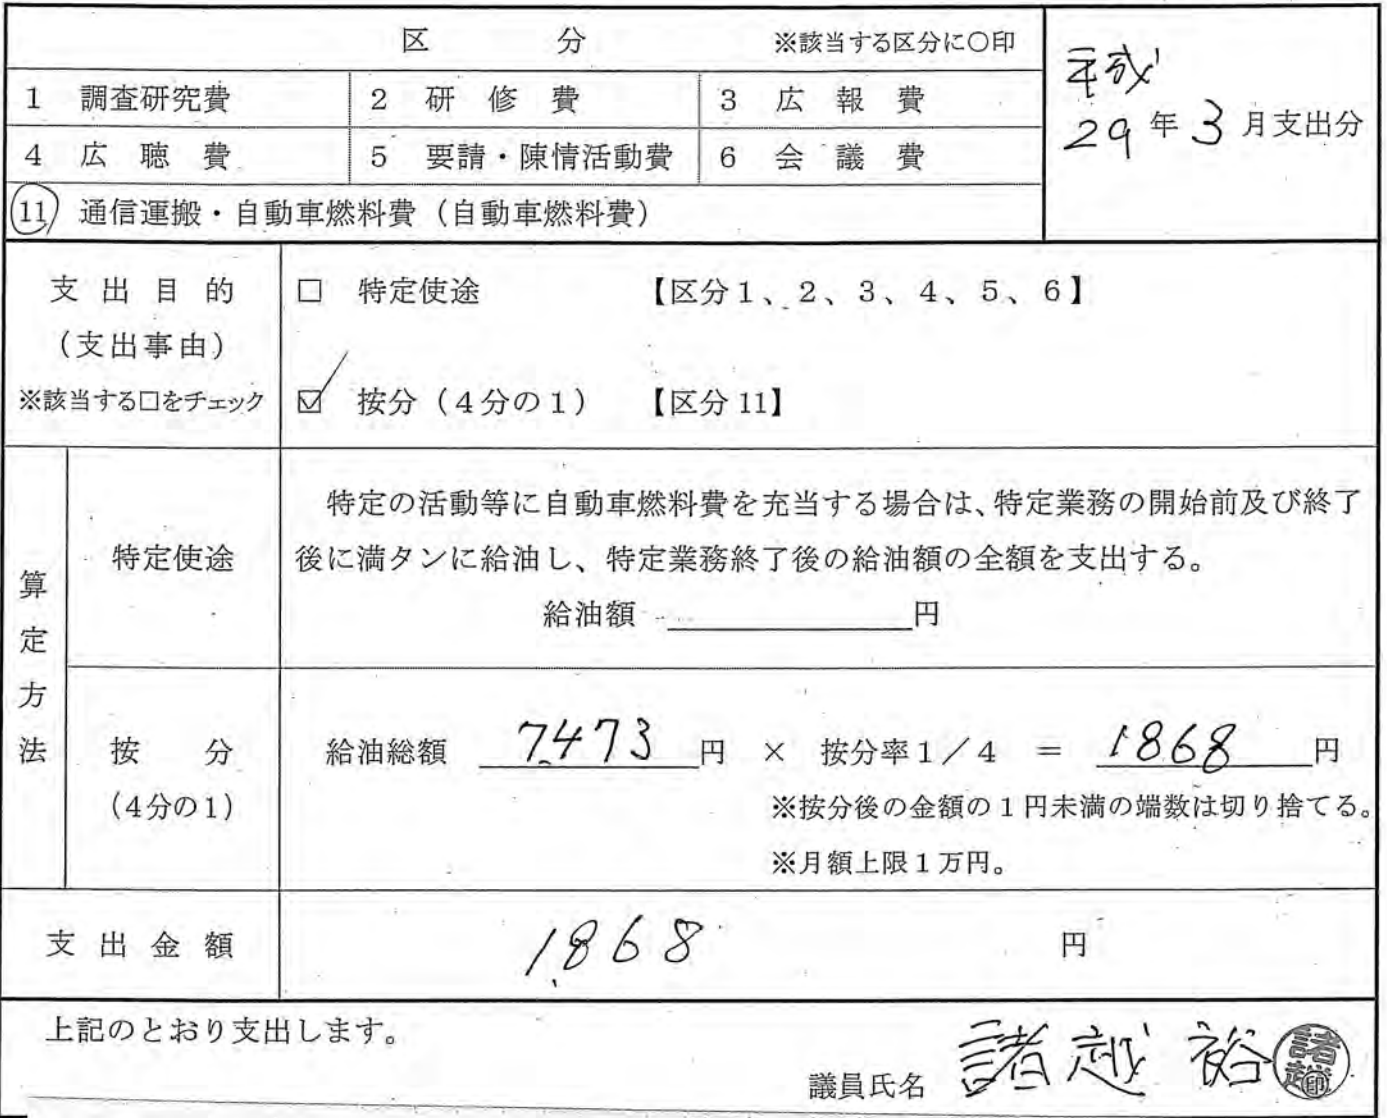 区 分 ※該当する区分に○印
1 調査研究費 2 研修費 3 広報費
平成
29年3月支出分
4 広聴費 5 要請・陳情活動費 6 会議費
11 通信運搬・自動車燃料費(自動車燃料費)
支出目的
(支出事由)
※該当する□をチェック
□ 特定使途 【区分1、2、3、4、5、6】
☑ 按分(4分の1) 【区分11】
算定方法
特定使途
特定の活動等に自動車燃料費を充当する場合は、特定業務の開始前及び終了
後に満タンに給油し、特定業務終了後の給油額の全額を支出する。
給油額 円
按分
(4分の1)
給油総額 7,473 円 × 按分率1/4 = 1,868 円
※按分後の金額の1円未満の端数は切り捨てる。
※月額上限1万円。
支出金額 1,868 円
上記のとおり支出します。
議員氏名 諸越 裕
諸越印